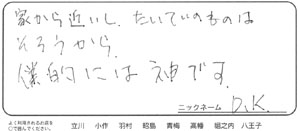 家から近いし、たいていのものは
そろうから。
僕的には神です。
ニックネーム D.K.
よく利用されるお店を
○で囲んでください。 立川 小作 羽村 昭島 青梅 高幡 堀之内 八王子